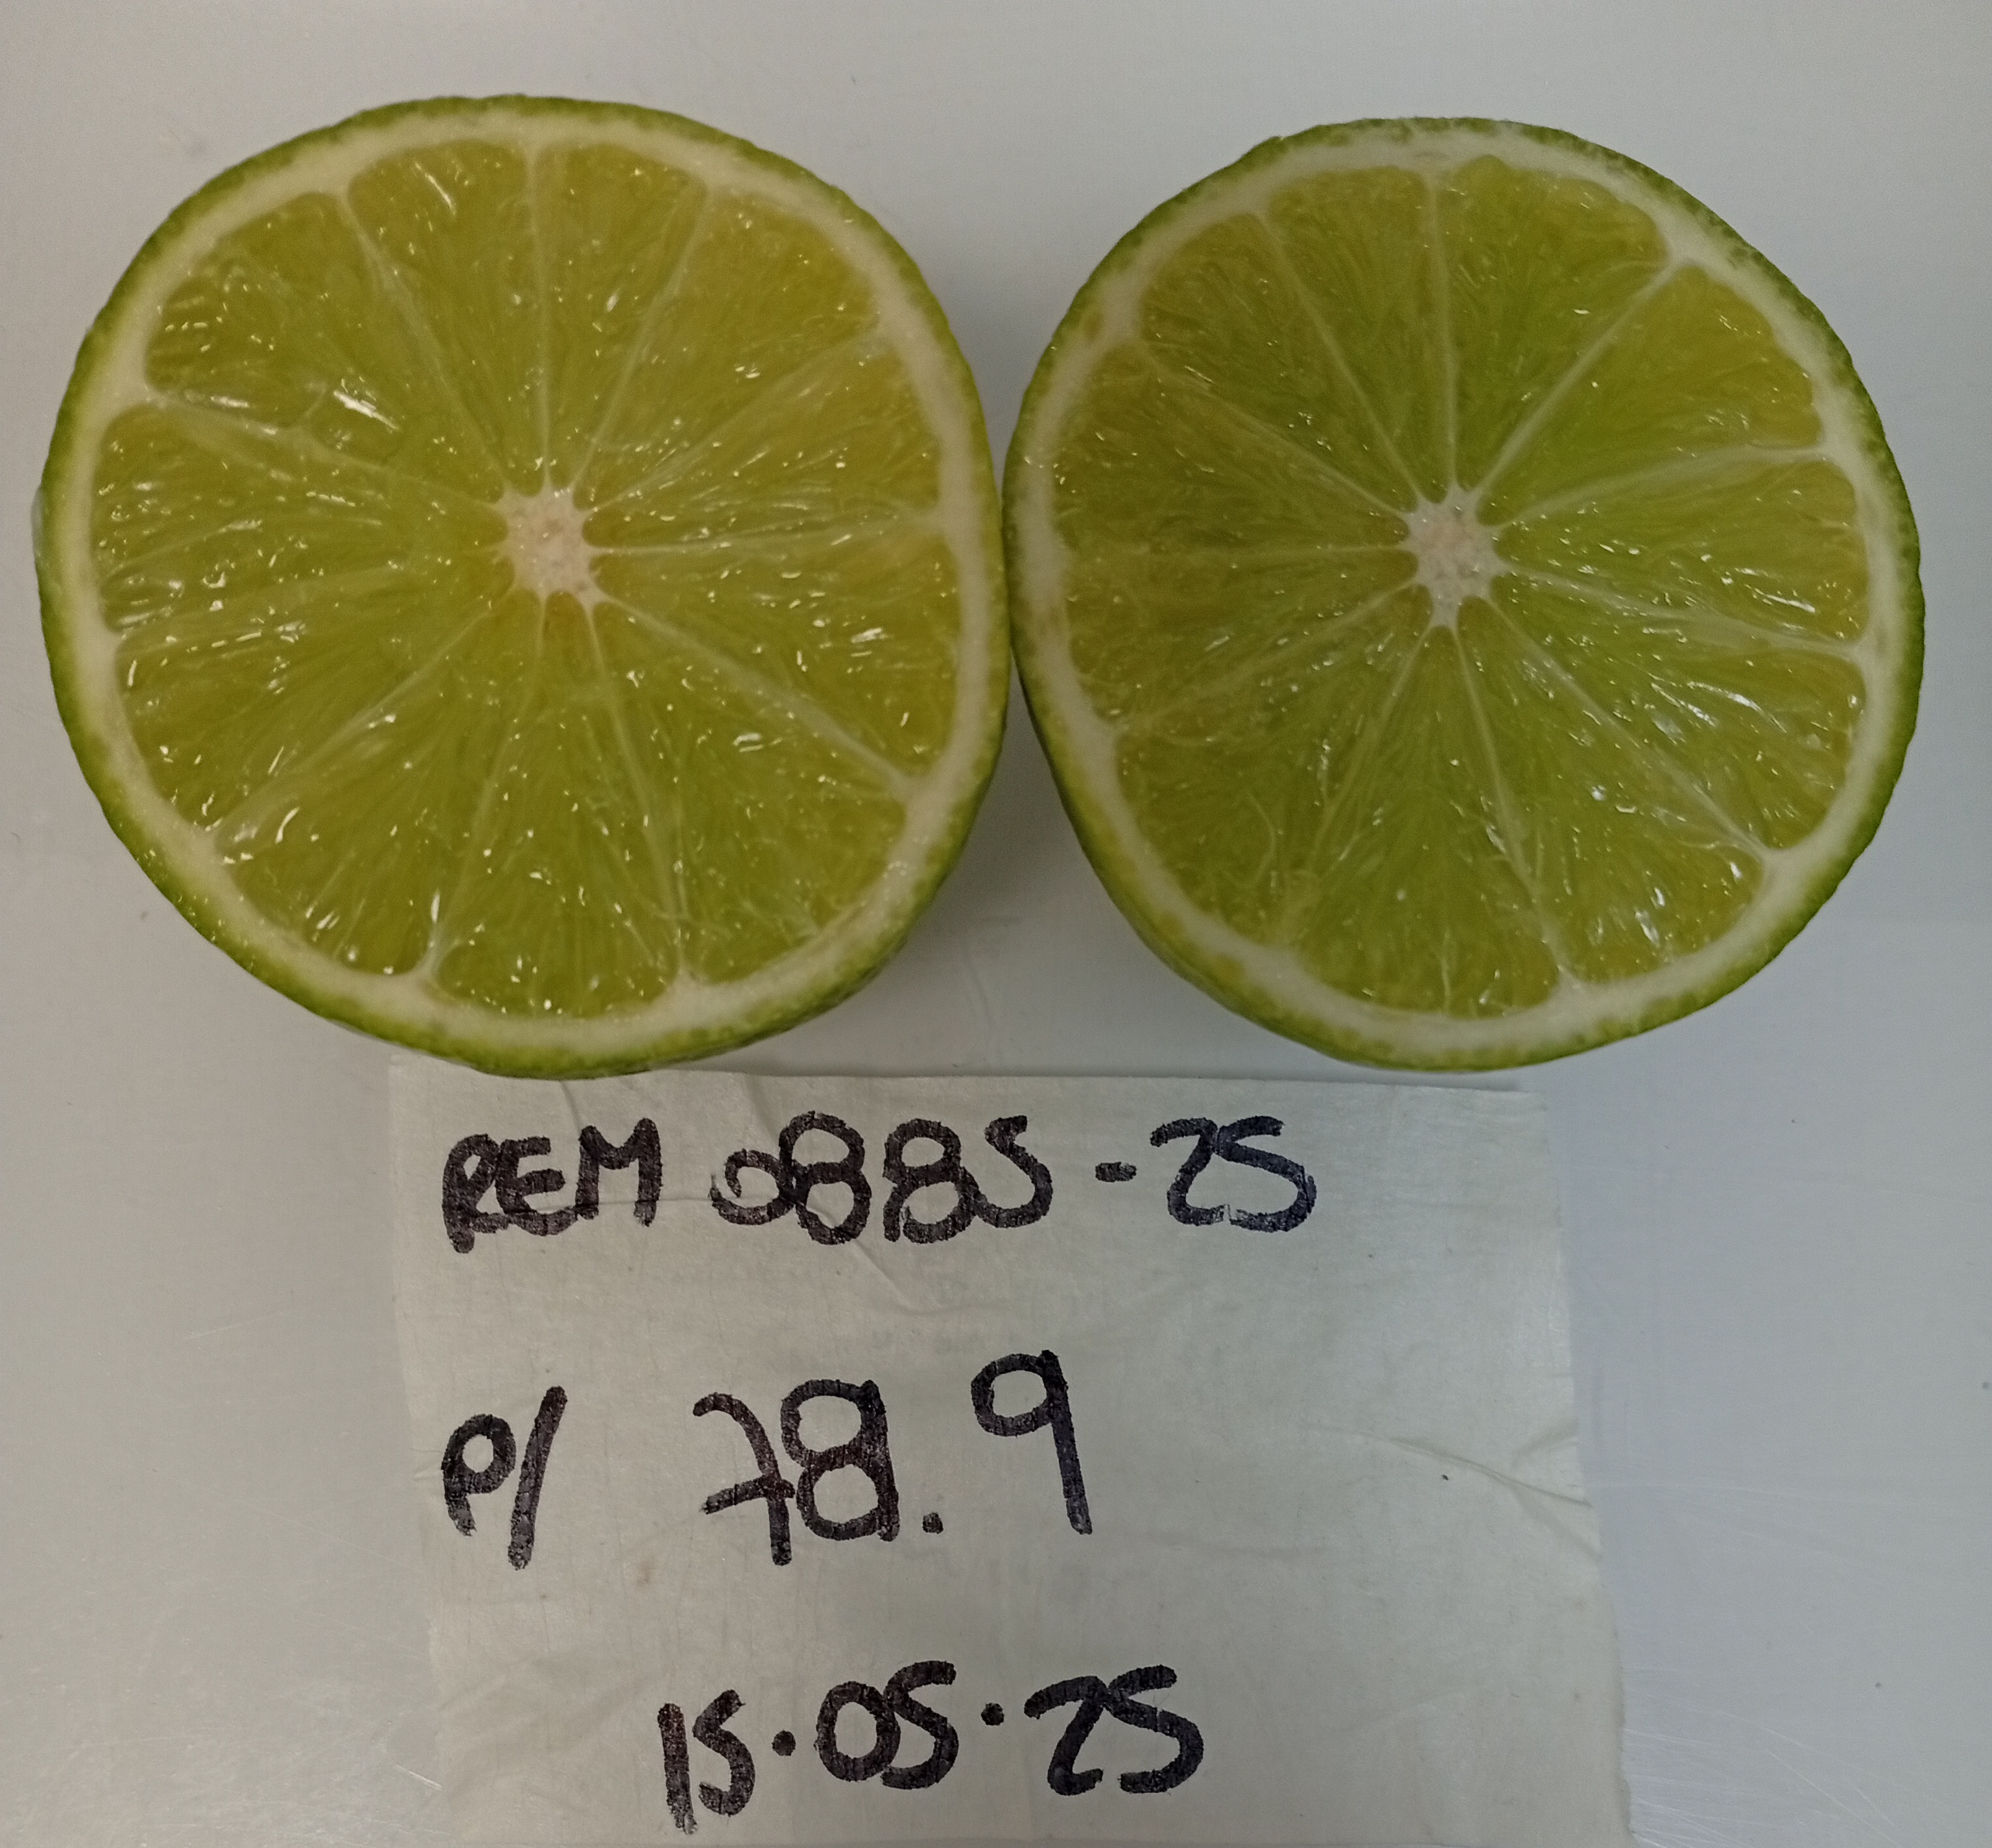 REM 0885-25
P/ 78.9
15.05.25